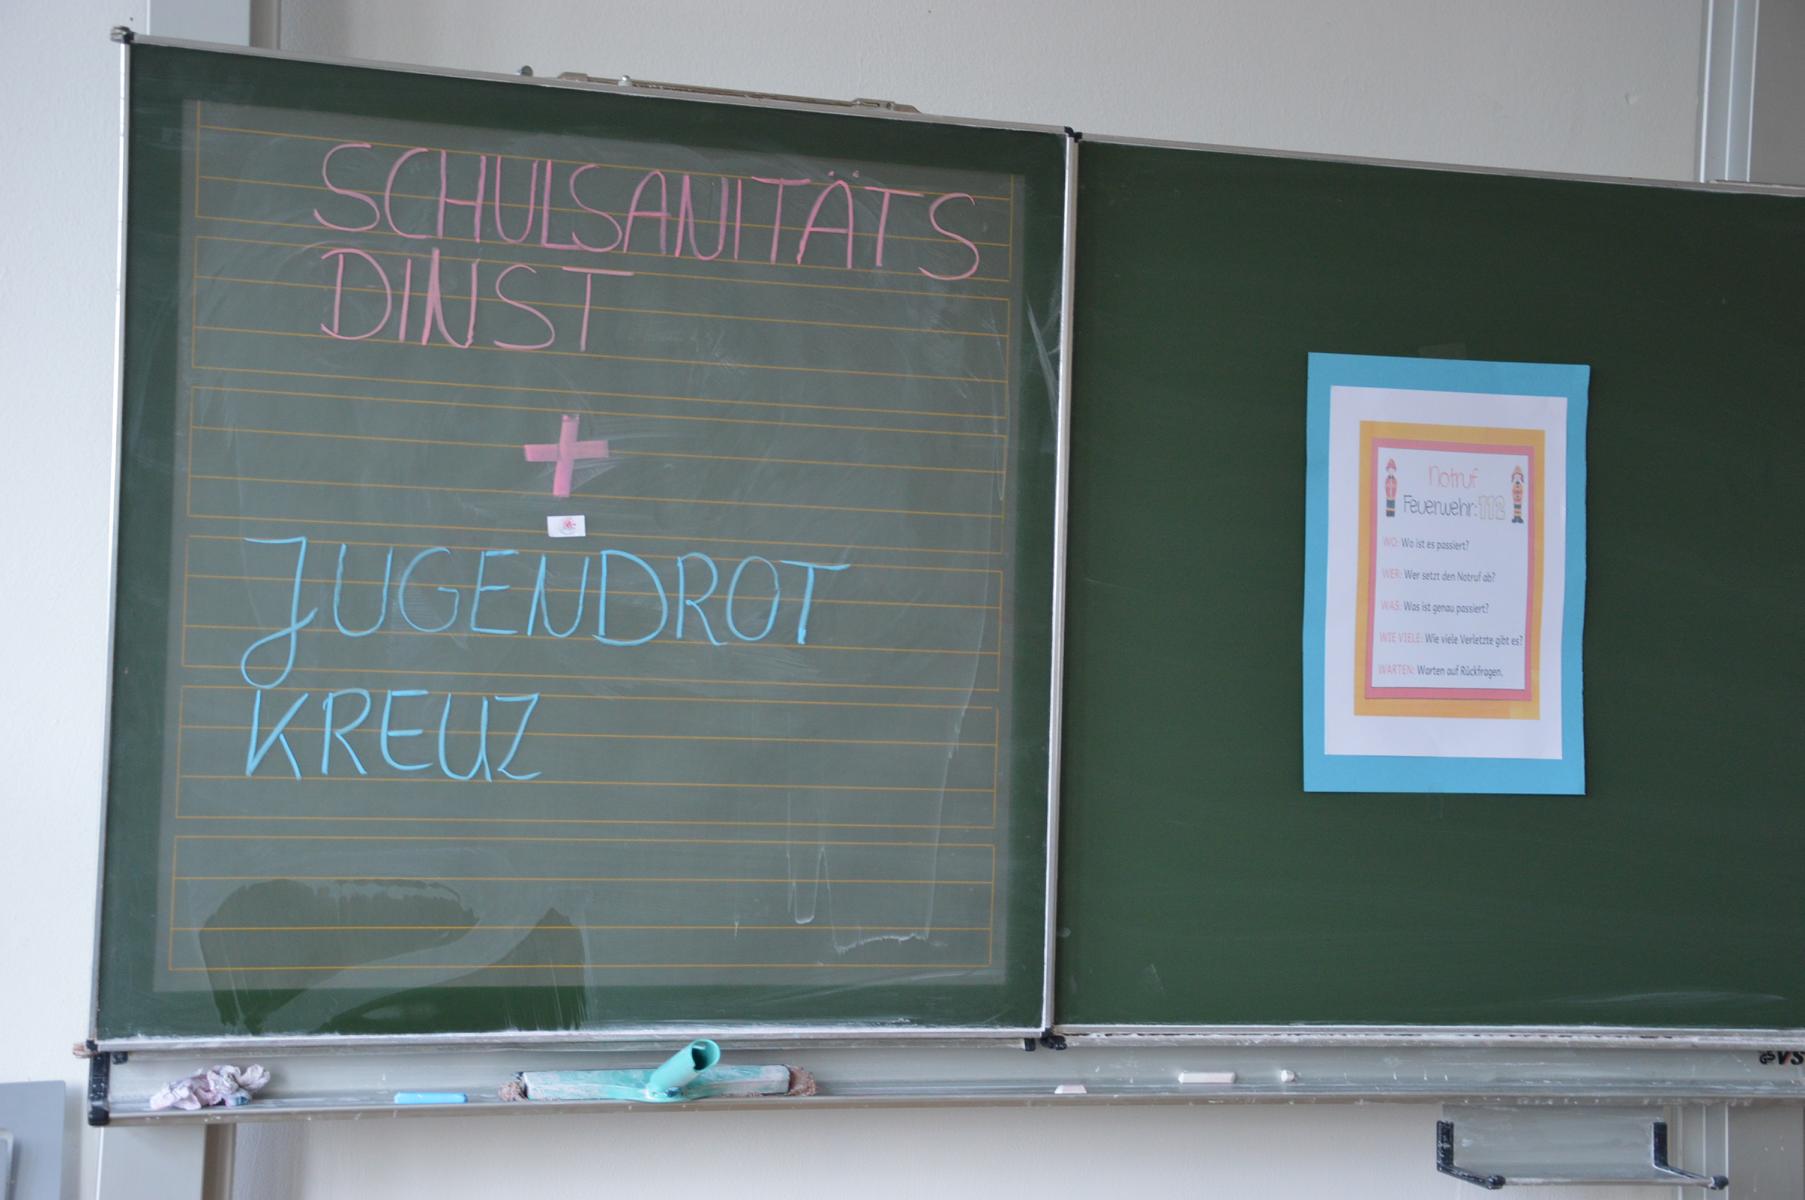 SCHULSANITÄTS
DINST
JUGENDROT
KREUZ
Notruf
Feuerwehr: 112
WO: Wo ist es passiert?
WER: Wer setzt den Notruf ab?
WAS: Was ist genau passiert?
WIE VIELE: Wie viele Verletzte gibt es?
WARTEN: Warten auf Rückfragen.
VS